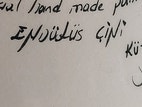 hand made
ENDÜLÜS ÇİNİ
KÜ